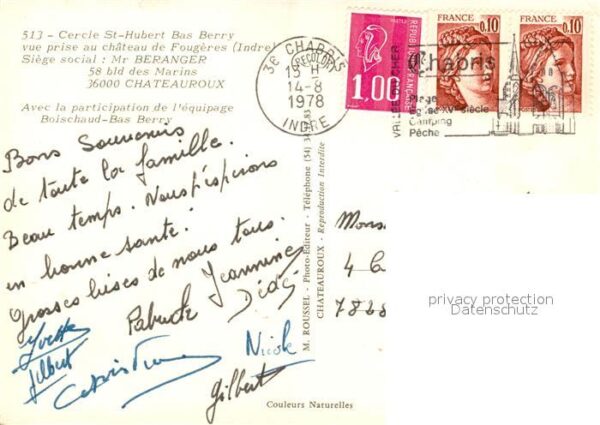 513 - Cercle St-Hubert Bas Berry
vue prise au château de Fougères (Indre)
Siège social : Mr BERANGER
58 bld des Marins
36000 CHATEAUROUX
Avec la participation de l'équipage
Boischaud-Bas Berry
36 CHABRIS
15 H
14-8
1978
INDRE
1,00
RÉPUBLIQUE FRANÇAISE
FRANCE
0,10
FRANCE
0,10
Chabris
Plage
Camping
Pêche
Bons Souvenirs
de toute la famille.
Beau temps. Nous espérons
en bonne santé.
Grosses bises de nous tous.
Jeannine
Dédé
Yvette
Gilbert
Nicole
Gilbert
M. ROUSSEL - Photo-Editeur - Téléphone (54)
CHATEAUROUX - Reproduction Interdite
4
privacy protection
Datenschutz
Couleurs Naturelles